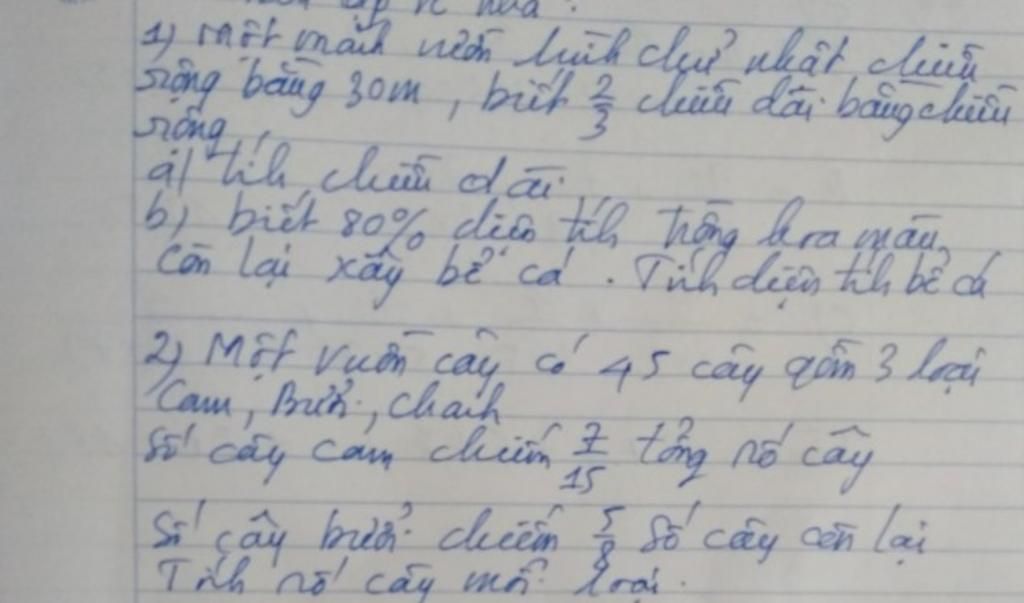 1) Một mảnh vườn hình chữ nhật chiều
rộng bằng 30m, biết 2/3 chiều dài bằng chiều
rộng,
a) Tính chiều dài
b) biết 80% diện tích trồng hoa màu,
Còn lại xây bể cá. Tính diện tích bể cá
2) Một vườn cây có 45 cây gồm 3 loại
Cam, Bưởi, chanh
Số cây cam chiếm 7/15 tổng số cây
Số cây bưởi chiếm 5/8 số cây còn lại
Tính số cây mỗi loại.